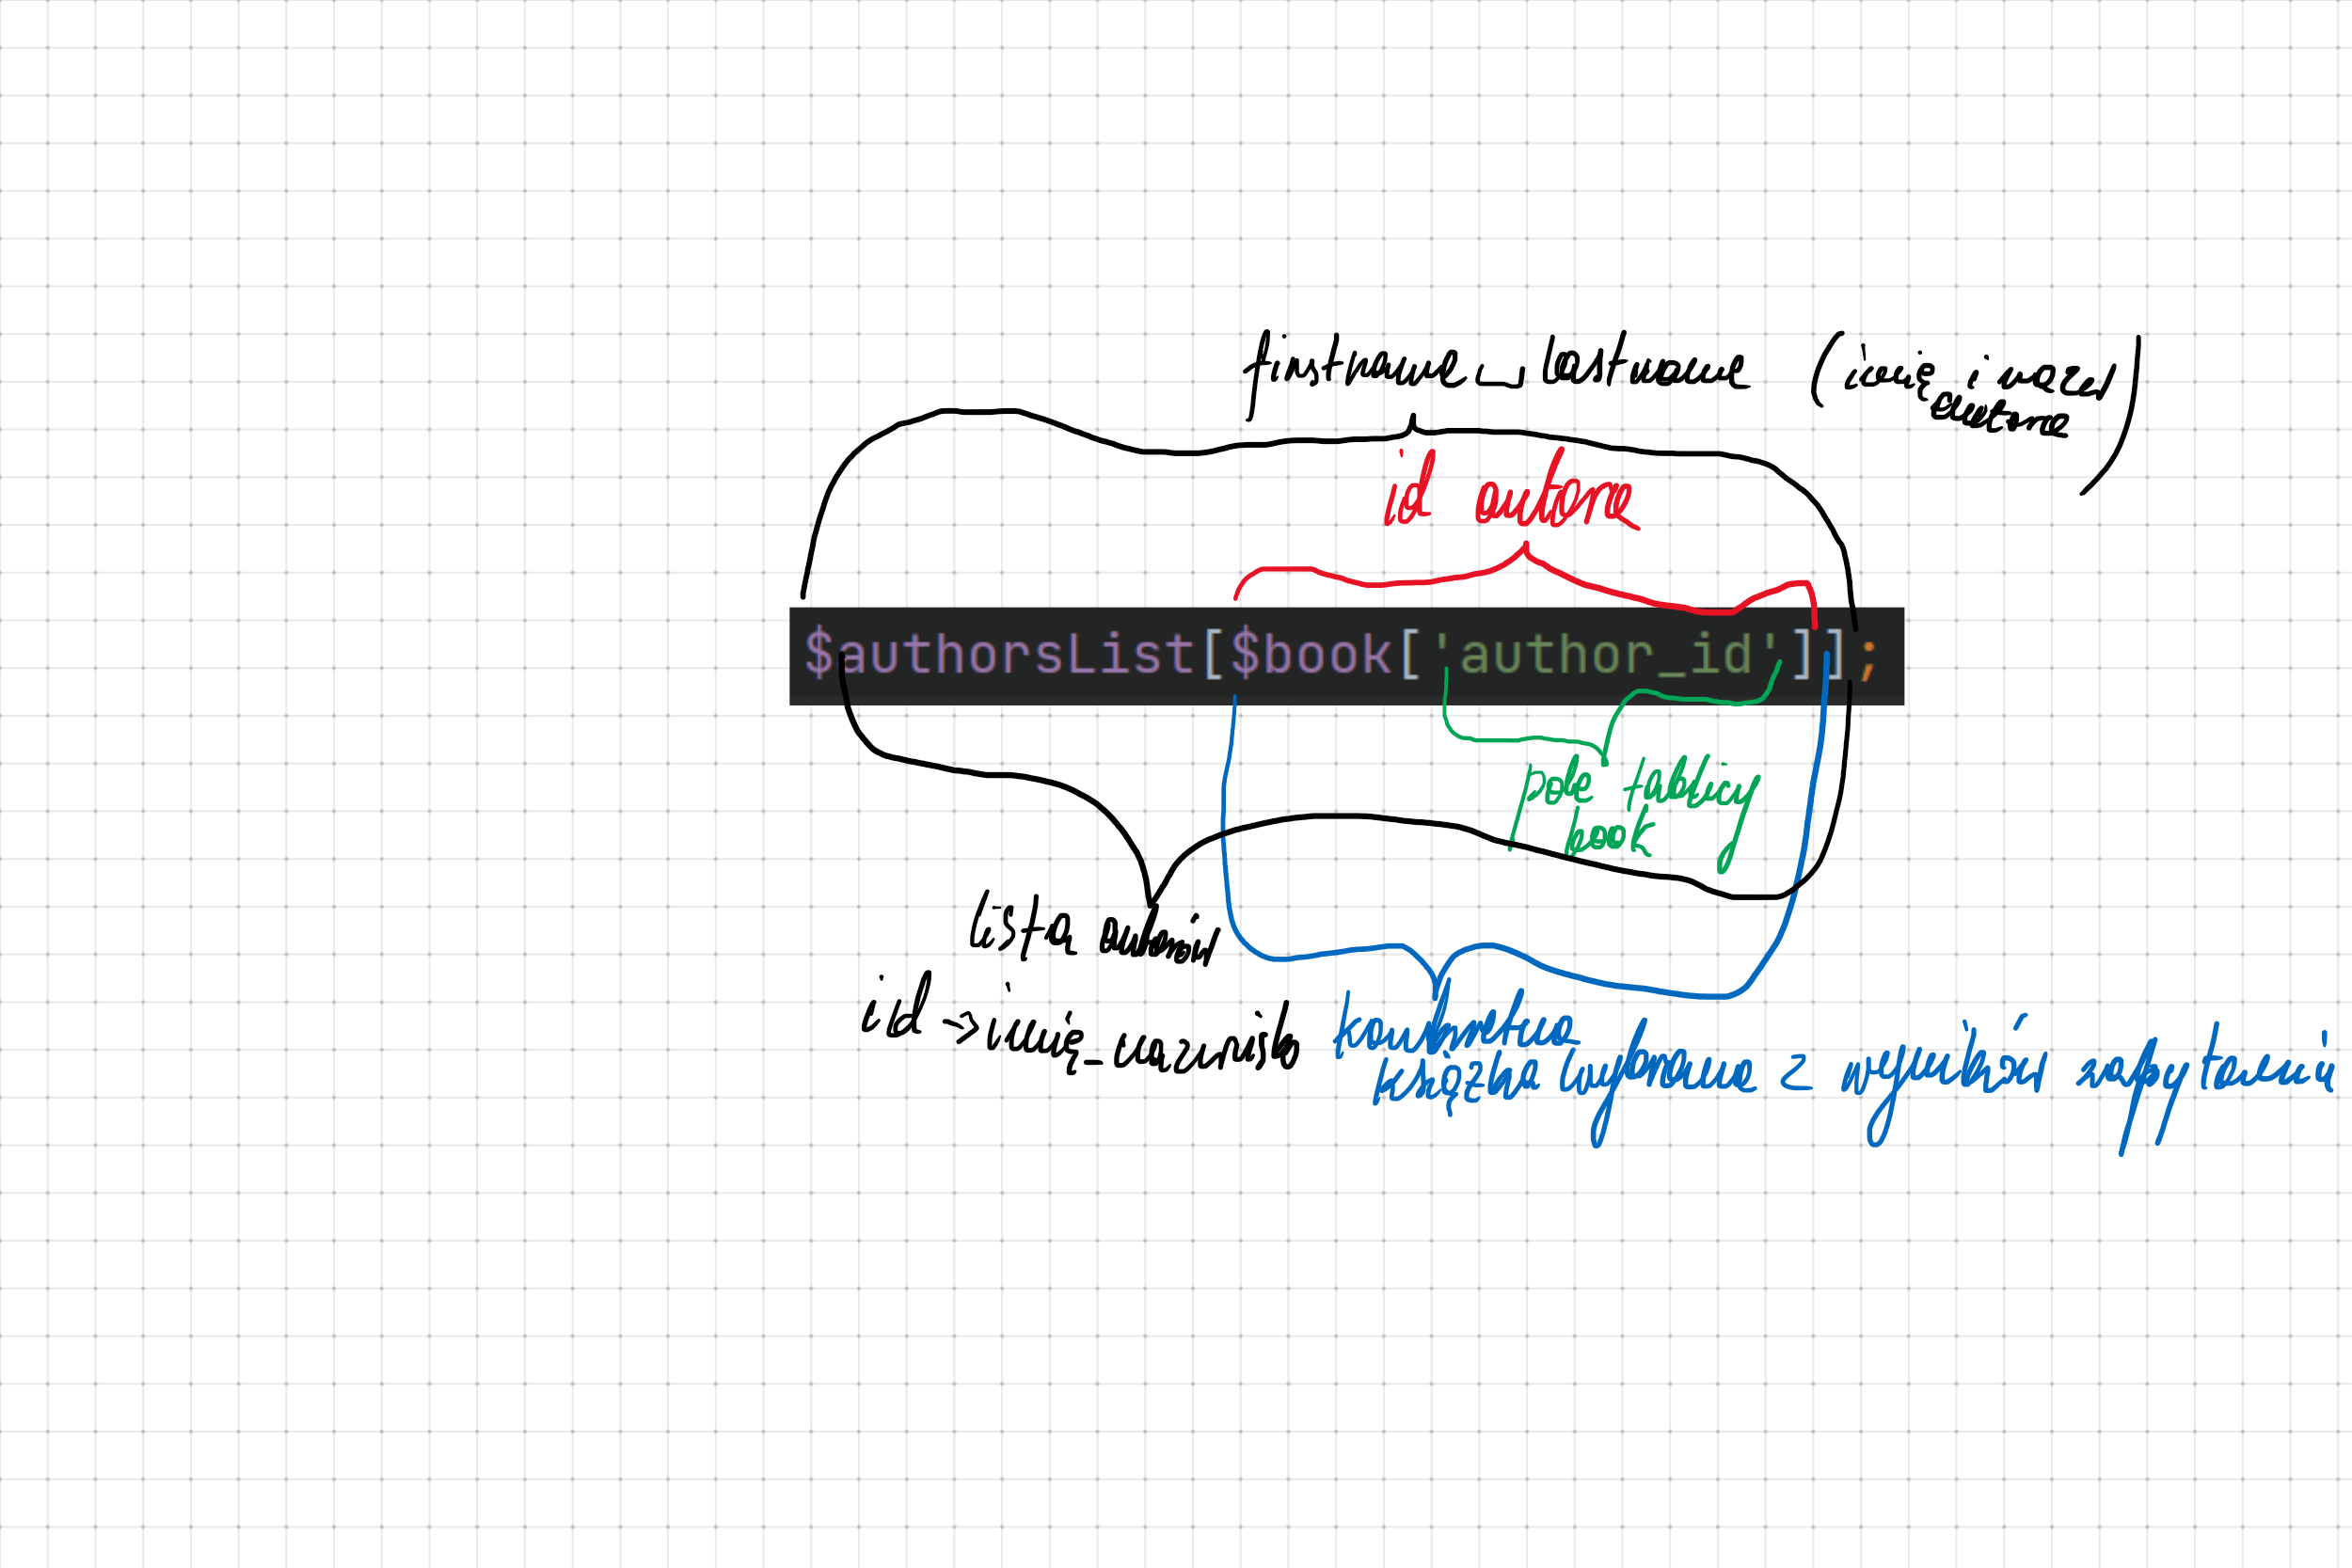 firstname_lastname (imię i nazw
autora)
id autora
$authorsList[$book['author_id']];
pole tablicy
book
lista autorów
id → imię_nazwisko
konkretna
książka (wybrane z wyników zapytania